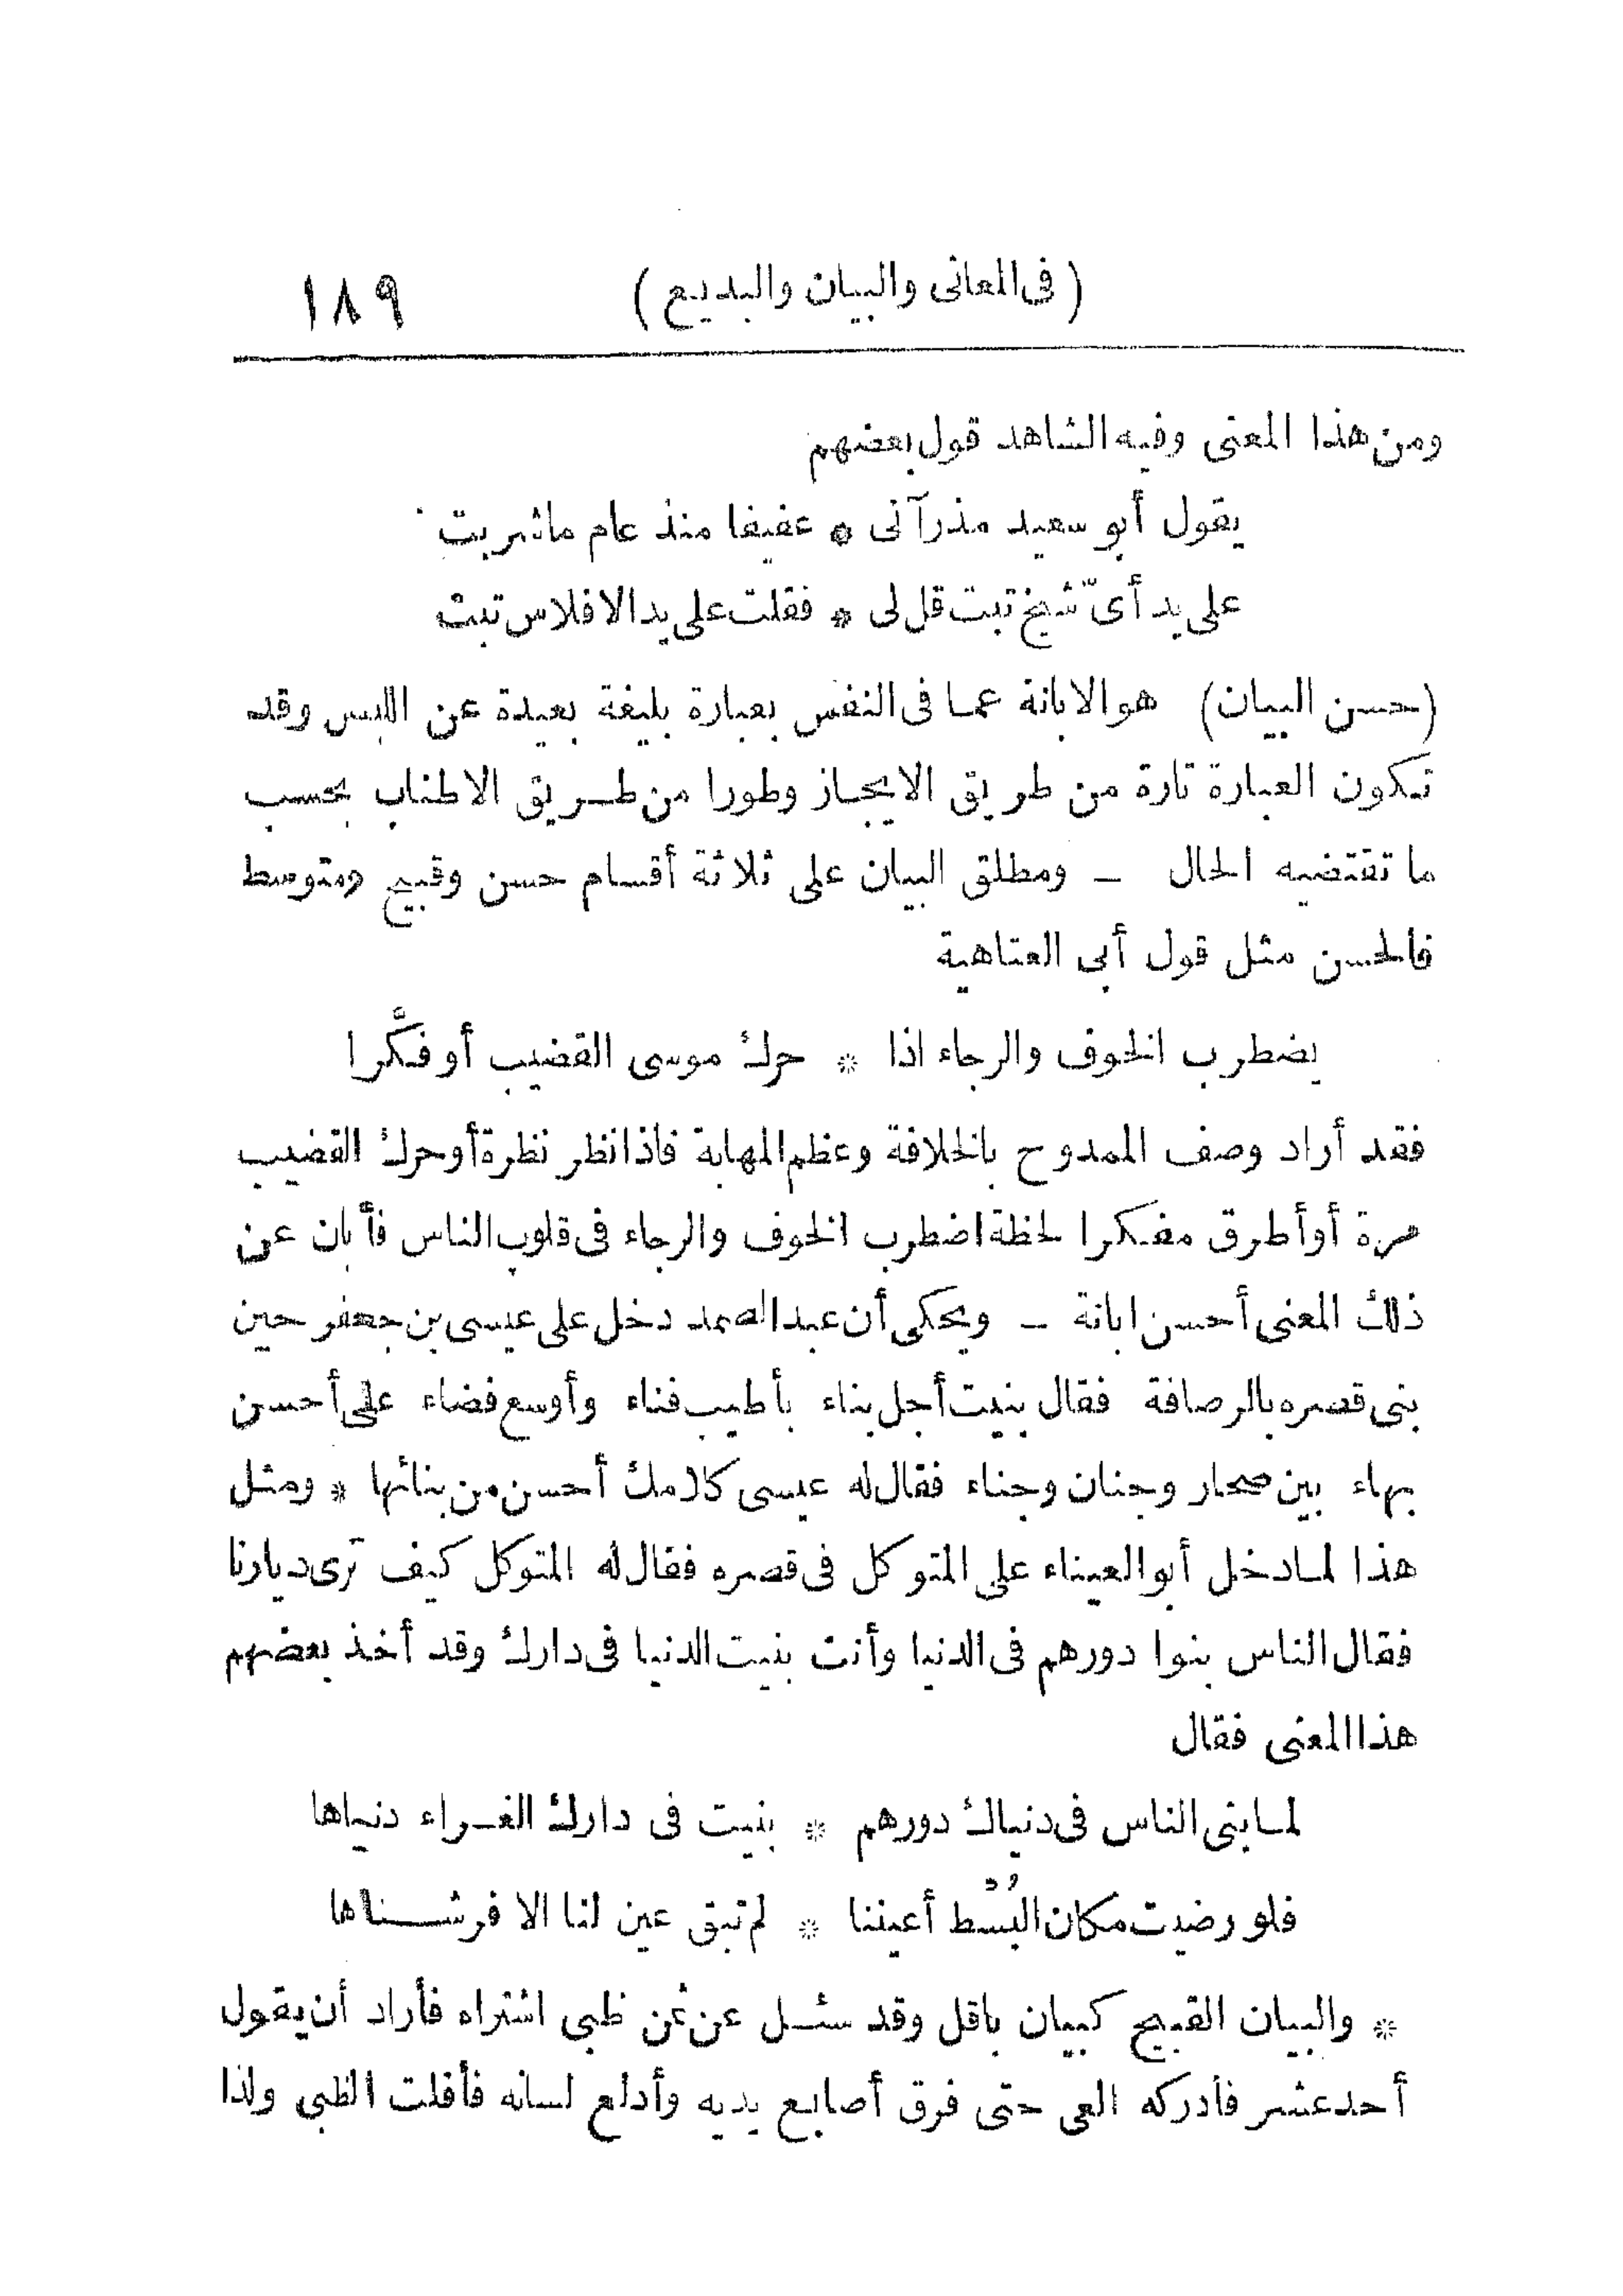 (فى المعانى والبيان والبديع) ١٨٩
ومن هذا المعنى وفيه الشاهد قول بعضهم
يقول أبو سعيد مذ رآنى * عفيفا منذ عام ما شربت
على يد أىّ شيخ تبت قل لى * فقلت على يد الافلاس تبت
(حسن البيان) هو الابانة عما فى النفس بعبارة بليغة بعيدة عن اللبس وقد
تكون العبارة تارة من طريق الايجاز وطورا من طريق الاطناب بحسب
ما تقتضيه الحال _ ومطلق البيان على ثلاثة أقسام حسن وقبيح ومتوسط
فالحسن مثل قول أبى العتاهية
يضطرب الخوف والرجاء اذا * حرك موسى القضيب أو فكَّرا
فقد أراد وصف الممدوح بالخلافة وعظم المهابة فاذا نظر نظرة أو حرك القضيب
مرة أو أطرق مفكرا لحظة اضطرب الخوف والرجاء فى قلوب الناس فأبان عن
ذلك المعنى أحسن ابانة _ ويحكى أن عبد الصمد دخل على عيسى بن جعفر حين
بنى قصره بالرصافة فقال بنيت أجل بناء بأطيب فناء وأوسع فضاء على أحسن
بهاء بين صحار وجنان وجناء فقال له عيسى كلامك أحسن من بنائها * ومثل
هذا لما دخل أبو العيناء على المتوكل فى قصره فقال له المتوكل كيف ترى ديارنا
فقال الناس بنوا دورهم فى الدنيا وأنت بنيت الدنيا فى دارك وقد أخذ بعضهم
هذا المعنى فقال
لما بنى الناس فى دنياك دورهم * بنيت فى دارك الغراء دنياها
فلو رضيت مكان البُسْط أعيننا * لم تبق عين لنا الا فرشناها
* والبيان القبيح كبيان باقل وقد سئل عن ثمن ظبى اشتراه فأراد أن يقول
أحد عشر فأدركه العى حتى فرق أصابع يديه وأدلع لسانه فأفلت الظبى ولذا